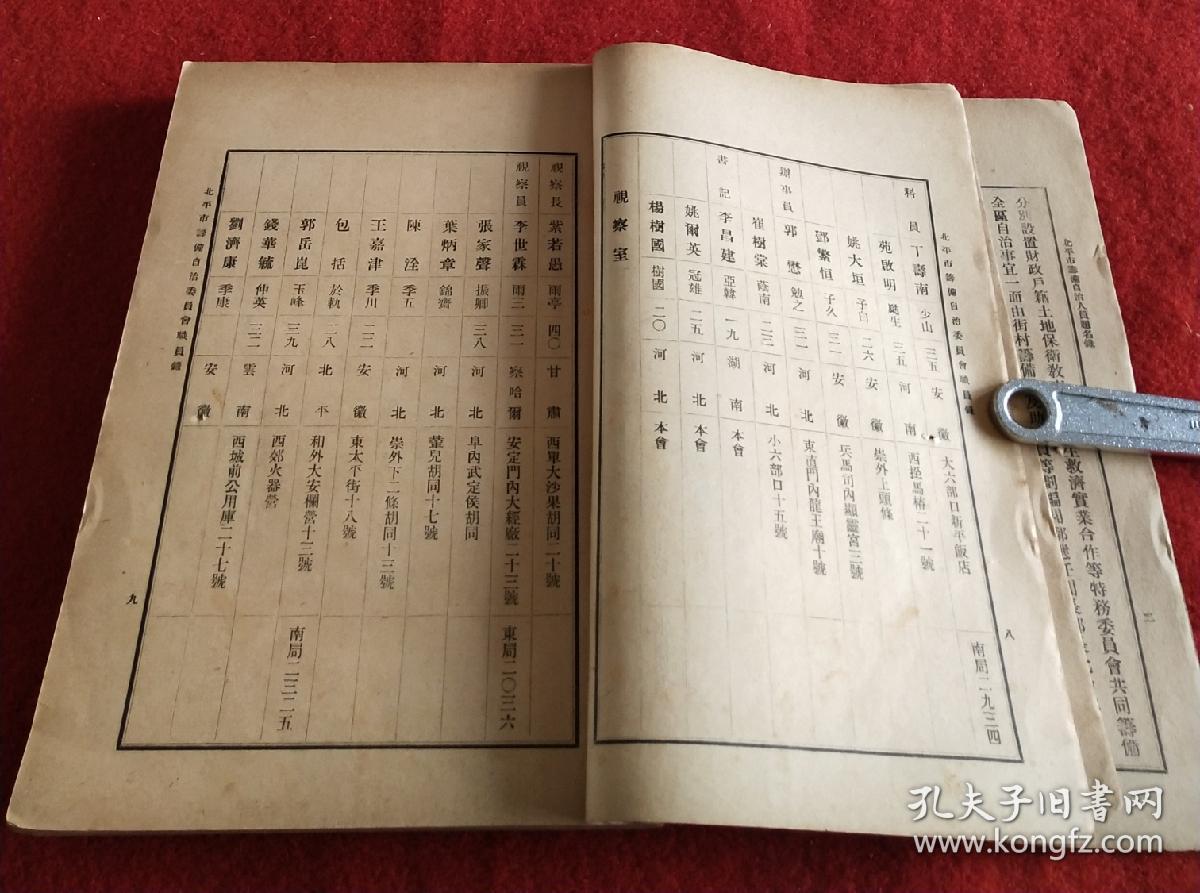 北平市籌備自治人員題名錄
二
分別設置財政戶籍土地保衛教
生救濟實業合作等特務委員會共同籌備
全區自治事宜一面由街村籌備
北平市籌備自治委員會職員錄
八
科員 丁壽南 少山 三五 安徽 大六部口新平飯店 南局二九三四
苑啟明 三五 河南 西拴馬樁二十一號
姚大垣 子白 二六 安徽 崇外上頭條
鄧繁恒 子久 三一 安徽 兵馬司內顯靈宮三號
辦事員 郭懋 勉之 三二 河北 東直門內龍王廟十號
崔樹棠 蔭南 二三 河北 小六部口十五號
書記 李昌建 亞韓 一九 湖南 本會
姚爾英 冠雄 二五 河北 本會
楊樹國 樹國 二〇 河北 本會
視察室
視察長 紫若愚 雨亭 四〇 甘肅 西單大沙果胡同二十號
視察員 李世霖 雨三 三一 察哈爾 安定門內大經廠二十三號 東局二〇三六
張家聲 振卿 三八 河北 阜內武定侯胡同
葉炳章 錦齋 河北 董兒胡同十七號
陳淦 季五 河北 崇外下二條胡同十三號
王嘉津 季川 二二 安徽 東太平街十八號
包括 於執 二八 北平 和外大安欄營十三號
郭岳崑 玉峰 三九 河北 西郊火器營 南局二三二五
錢華毓 仲英 三二 雲南 西城前公用庫二十七號
劉濟康 季康 安徽
北平市籌備自治委員會職員錄
九
孔夫子旧书网
www.kongfz.com